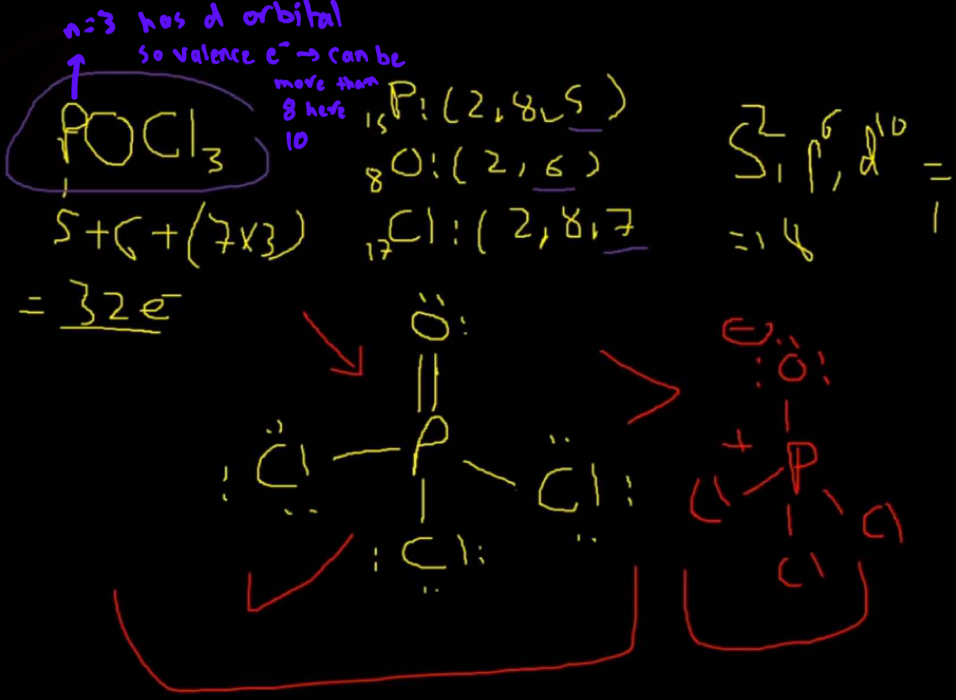 n=3 has d orbital
so valence e⁻ → can be
more than
8 here
10
POCl₃
5+6+(7×3)
= 32e⁻
₁₅P:(2,8,5)
₈O:(2,6)
₁₇Cl:(2,8,7
S²,p⁶,d¹⁰ =
= 18
1
O
Cl P Cl
Cl
⊖
O
+
P
Cl Cl
Cl